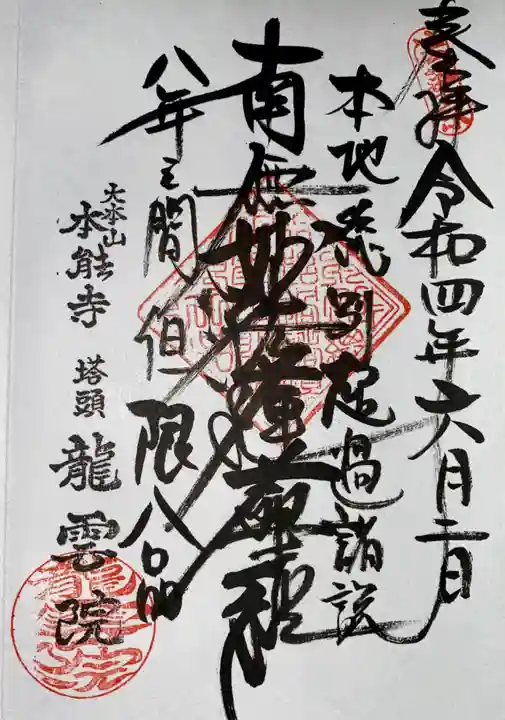 奉拝 令和四年六月二日
本地甚別超過諸説
南無妙法蓮華経
八年之間但限八品
大本山
本能寺 塔頭 龍雲院